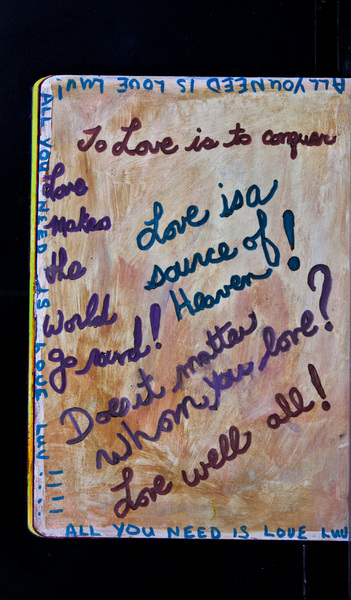 ALL YOU NEED IS LOVE LUV!
To Love is to conquer
Love
makes
the
World
Go round!
Love is a
source of
Heaven!
Does it matter
whom you love?
Love well all!
ALL YOU NEED IS LOVE LUV !!!!
ALL YOU NEED IS LOVE LUV